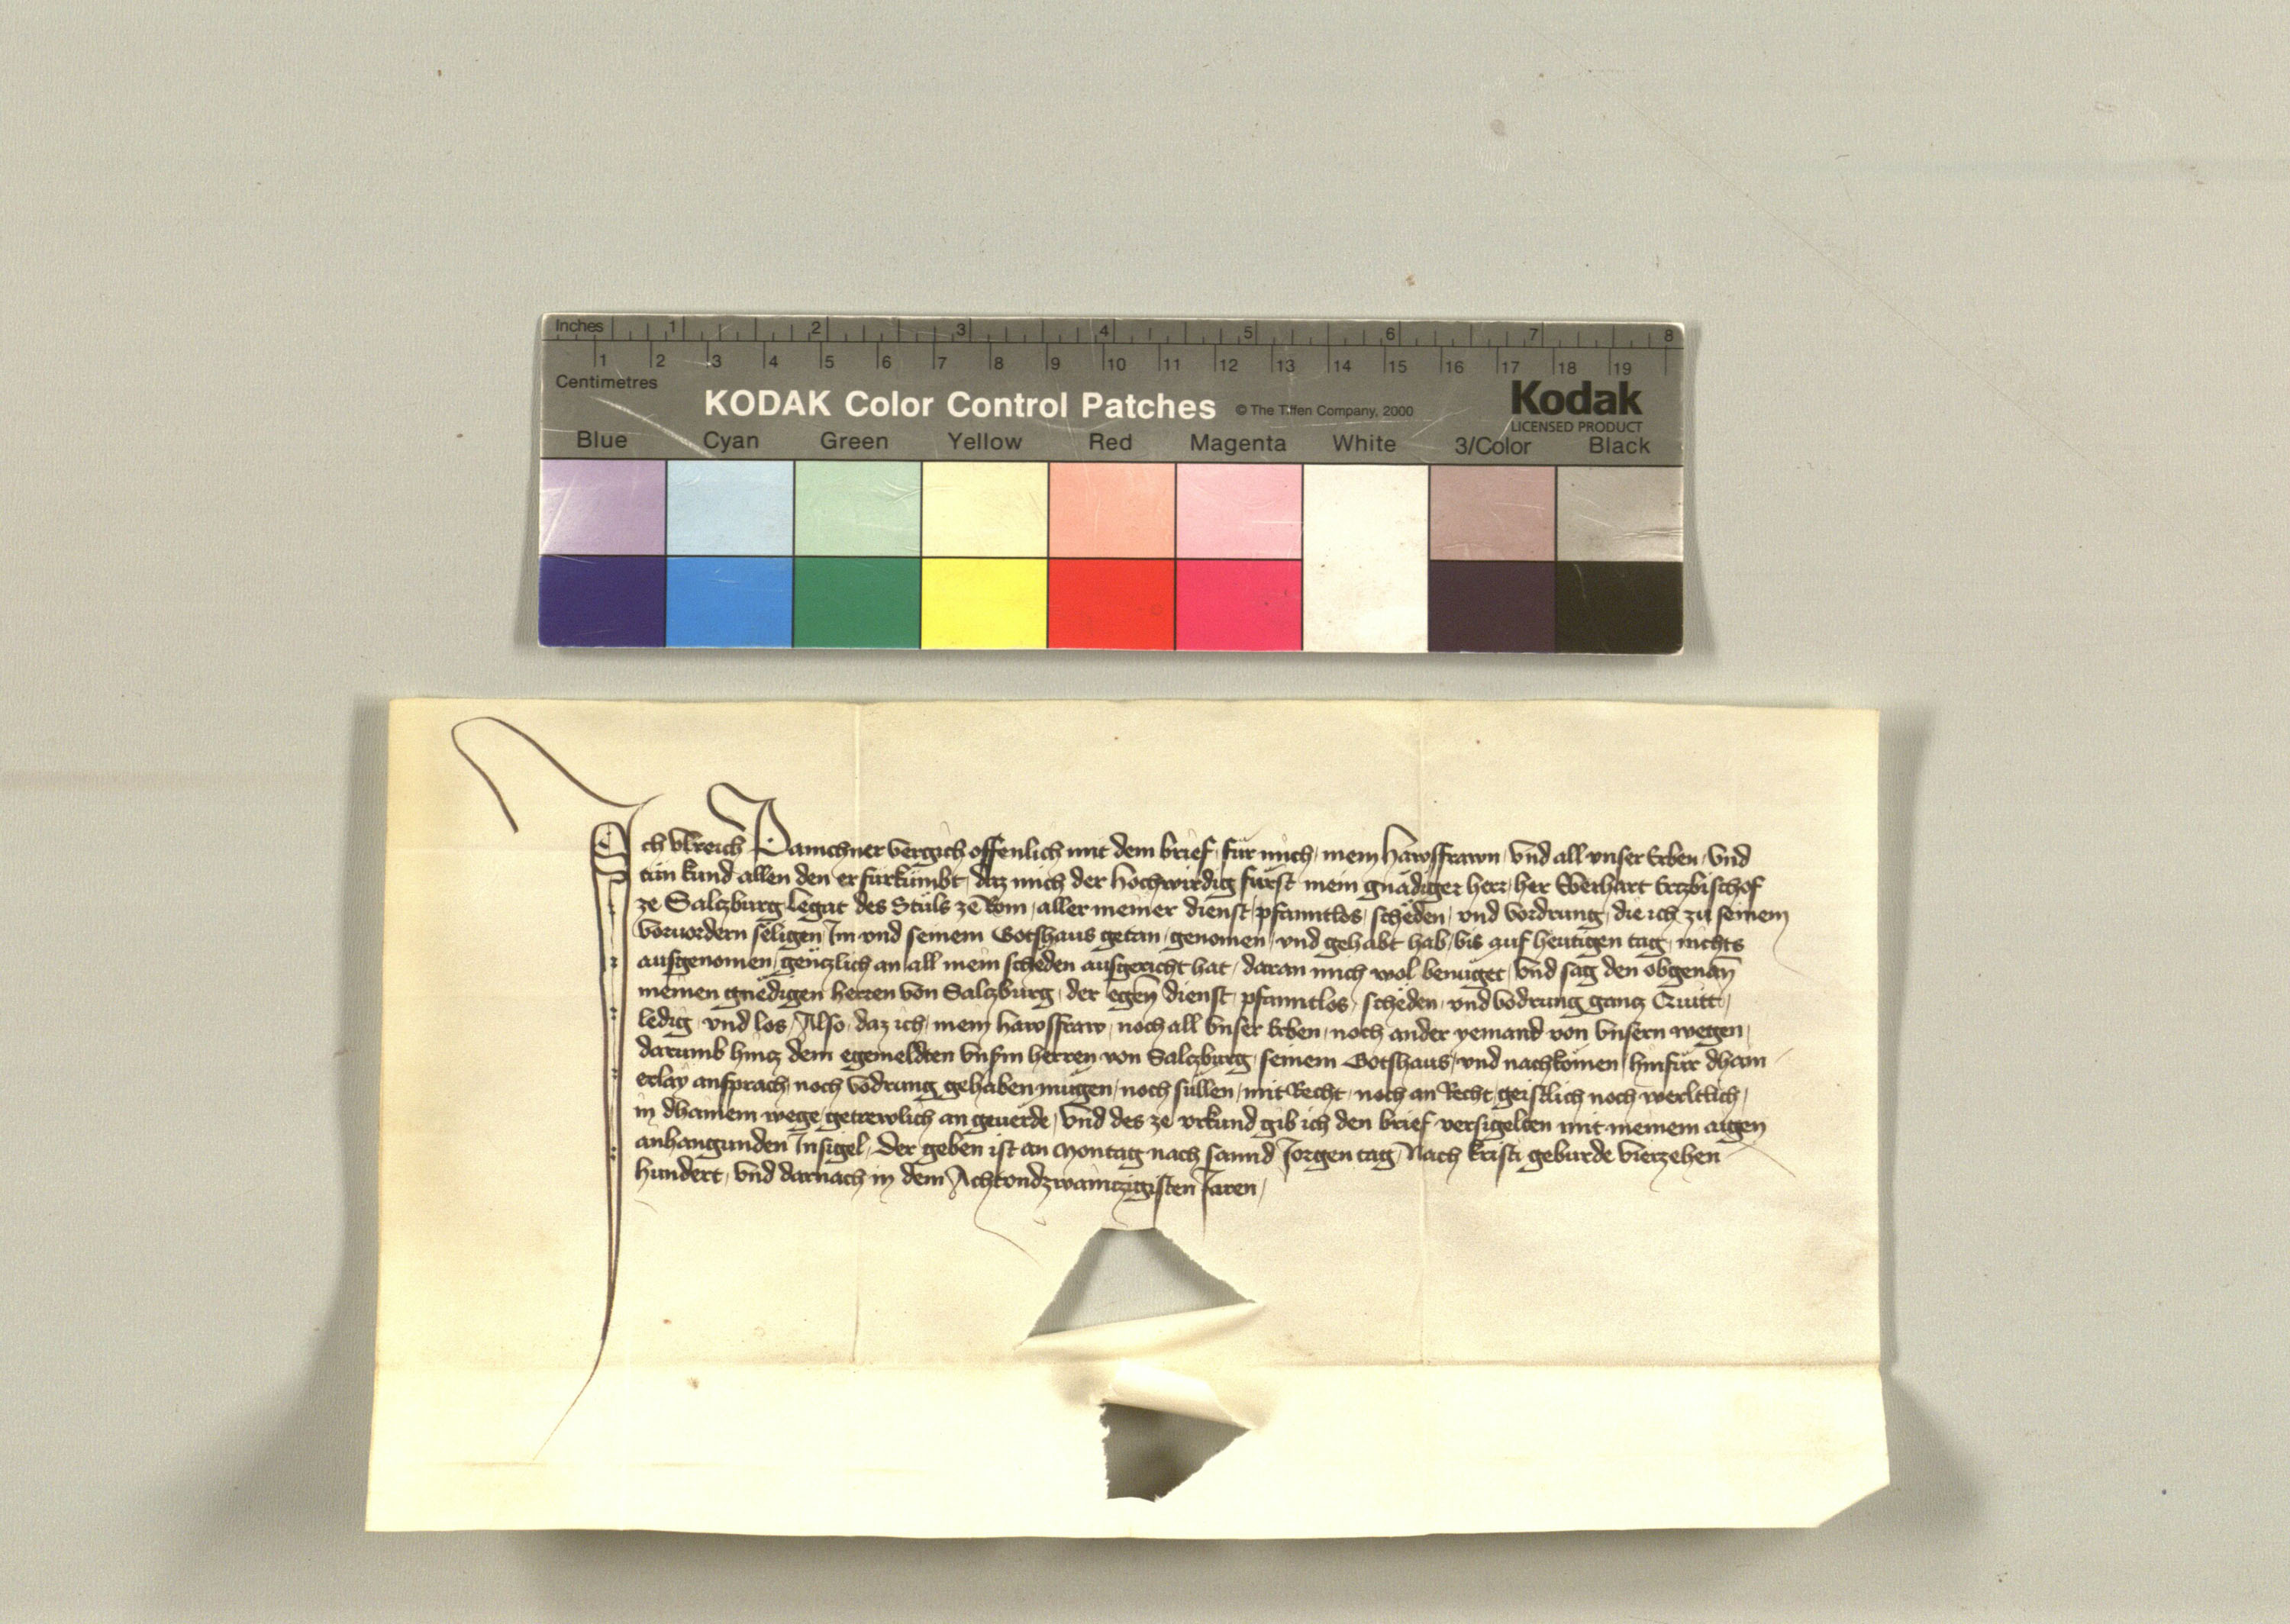 Inches 1 2 3 4 5 6 7 8
1 2 3 4 5 6 7 8 9 10 11 12 13 14 15 16 17 18 19
Centimetres
KODAK Color Control Patches © The Tiffen Company, 2000 Kodak
LICENSED PRODUCT
Blue Cyan Green Yellow Red Magenta White 3/Color Black
Ich vlreich vergich offenlich mit dem brief, für mich, mein hawsfrawn, vnd all vnser Erben, vnd
tůn kund allen den er fürkümbt, daz mich der hochwirdig fürst mein gnädiger herr, her Eberhart Erczbischof
ze Salczburg Legat des Stůls ze Rom, aller meiner dienst, pfanntlos, scheden, vnd vordrung, die ich zu seinem
voruordern seligen, Im vnd seinem Gotshaus getan, genomen, vnd gehabt hab, bis auf hewtigen tag, nichts
ausgenomen, genczlich an all mein scheden ausgericht hat, daran mich wol benůget, vnd sag den obgenan̄
meinen gnedigen herren von Salczburg, der egen̄ dienst, pfanntlos, scheden, vnd vodrung gancz Quitt,
ledig, vnd los, Also, daz ich, mein hawsfraw, noch all vnser Erben, noch ander yemand von vnsern wegen,
darumb hincz dem egemeldten vnserm herren von Salczburg, seinem Gotshaus, vnd nachkomen, hinfür dhain
erlay ansprach, noch vodrung gehaben mügen, noch süllen, mit Recht, noch an Recht, geistlich noch werltlich,
in dhainem wege, getrewlich an geuerde, Vnd des ze vrkund gib ich den brief versigelten mit meinem aigen
anhangunden Insigel, Der geben ist an Montag nach sannd Jorgen tag, Nach kristi geburde vierzehen
hundert, vnd darnach in dem Achtondzwainczigisten Jaren,